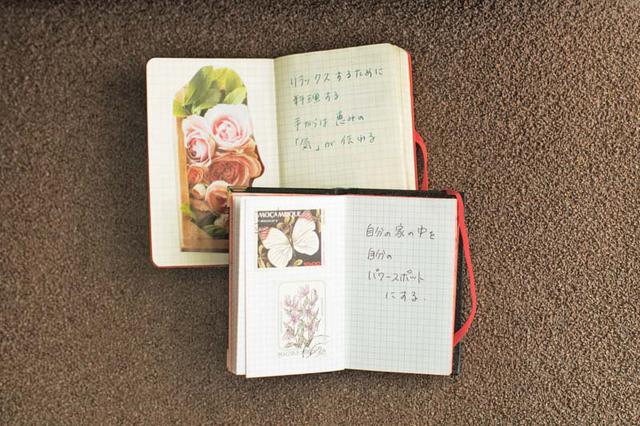 リラックスするために
料理する
手からは 恵みの
「気」が 伝わる
MOÇAMBIQUE
自分の家の中を
自分の
パワースポット
にする.